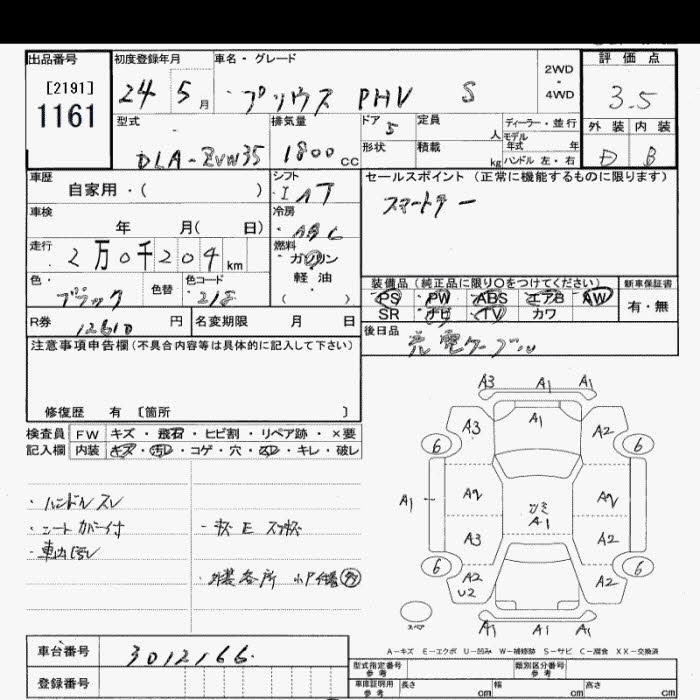 出品番号 初度登録年月 車名・グレード 2WD・4WD 評価点
[2191]
1161
24 5月 プリウス PHV S 3.5
型式 排気量 ドア 定員 人 ディーラー・並行 外装 内装
モデル年式 年
DLA-ZVW35 1800cc 5 形状 積載 kg ハンドル 左・右 D B
車歴 シフト セールスポイント (正常に機能するものに限ります)
自家用・( ) IAT スマートキー
車検 冷房
年 月( 日) AAC
走行 燃料
2万0千204km ガソリン
軽油
( )
色 色替 色コード
ブラック 218
装備品 (純正品に限り○をつけてください) 新車保証書
PS PW ABS エアB AW 有・無
SR ナビ TV カワ
R券 12610円 名変期限 月 日 後日品 充電ケーブル
注意事項申告欄 (不具合内容等は具体的に記入して下さい)
修復歴 有 [箇所 ]
検査員 FW キズ・飛石・ヒビ割・リペア跡・×要
記入欄 内装 キズ・汚レ・コゲ・穴・スレ・キレ・破レ
・ハンドルスレ
・シートカバー付
・車内汚レ
A3 A1 A1
A3 A1 A2
6 6
A1 A2 A2
A1
A3 A2
6 6
A2 A2
U2
スペア A1 A1 A1
A-キズ E-エクボ U-凹み W-補修跡 S-サビ C-腐食 XX-交換済
車台番号 3012166
登録番号
型式指定番号 参考 類別区分番号 参考
車庫証明用 参考 長さ cm 幅 cm 高さ cm